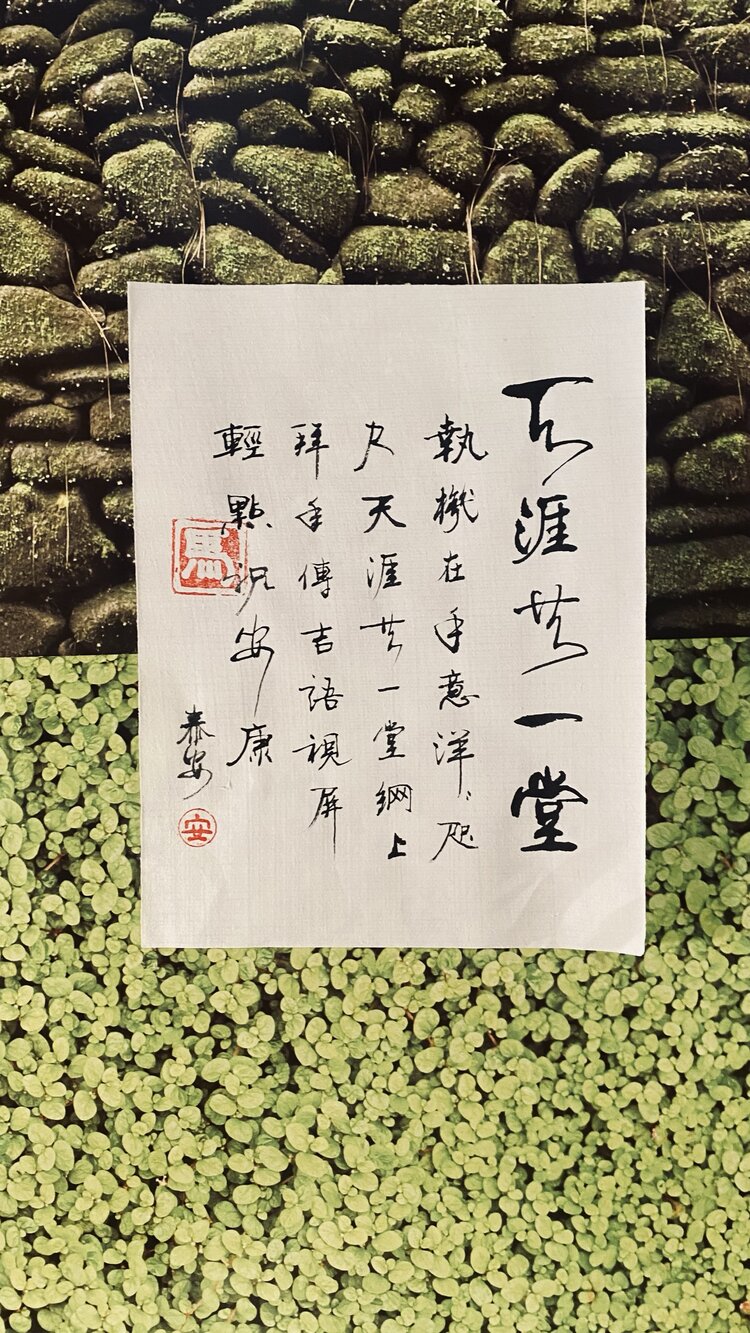 天涯共一堂
執機在手意洋〻咫
尺天涯共一堂網上
拜年傳吉語視屏
輕點祝安康
馬
泰安
安